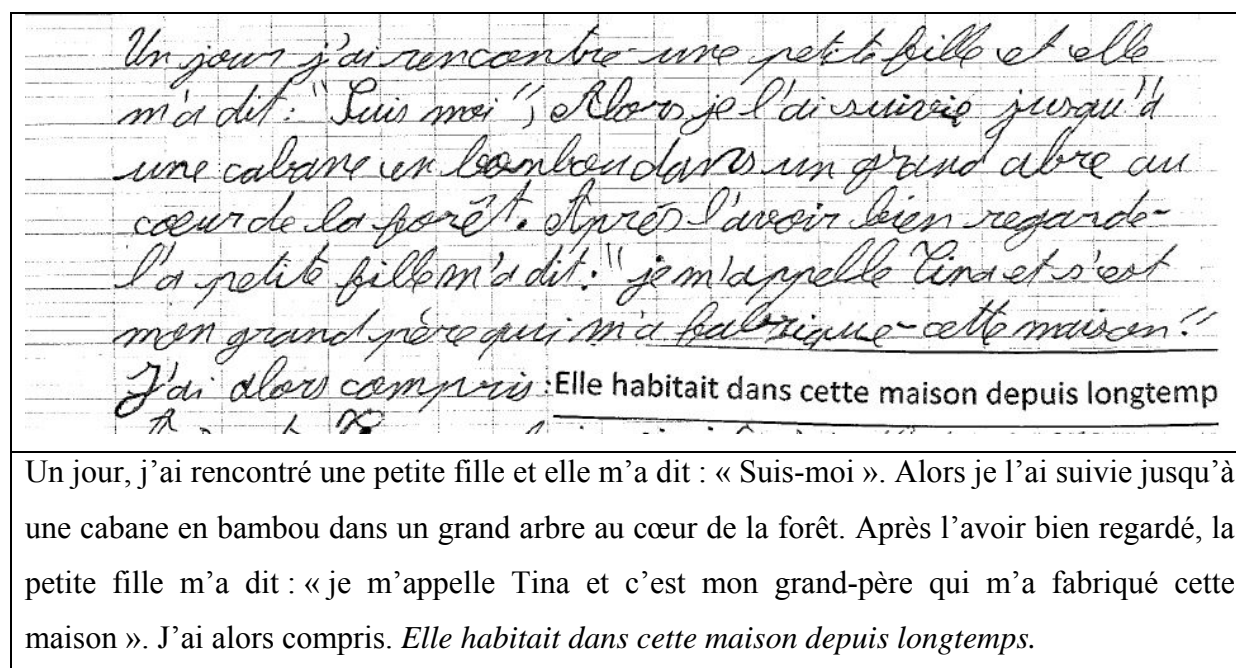 Un jour j'ai rencontré une petite fille et elle
m'a dit : "Suis moi", Alors je l'ai suivie jusqu'à
une cabane en bambou dans un grand abre au
cœur de la forêt. Après l'avoir bien regardé
l'a petite fille m'a dit : "je m'appelle Tina et s'est
mon grand père qui m'a fabriqué cette maison."
J'ai alors compris : Elle habitait dans cette maison depuis longtemp
Un jour, j'ai rencontré une petite fille et elle m'a dit : « Suis-moi ». Alors je l'ai suivie jusqu'à
une cabane en bambou dans un grand arbre au cœur de la forêt. Après l'avoir bien regardé, la
petite fille m'a dit : « je m'appelle Tina et c'est mon grand-père qui m'a fabriqué cette
maison ». J'ai alors compris. Elle habitait dans cette maison depuis longtemps.